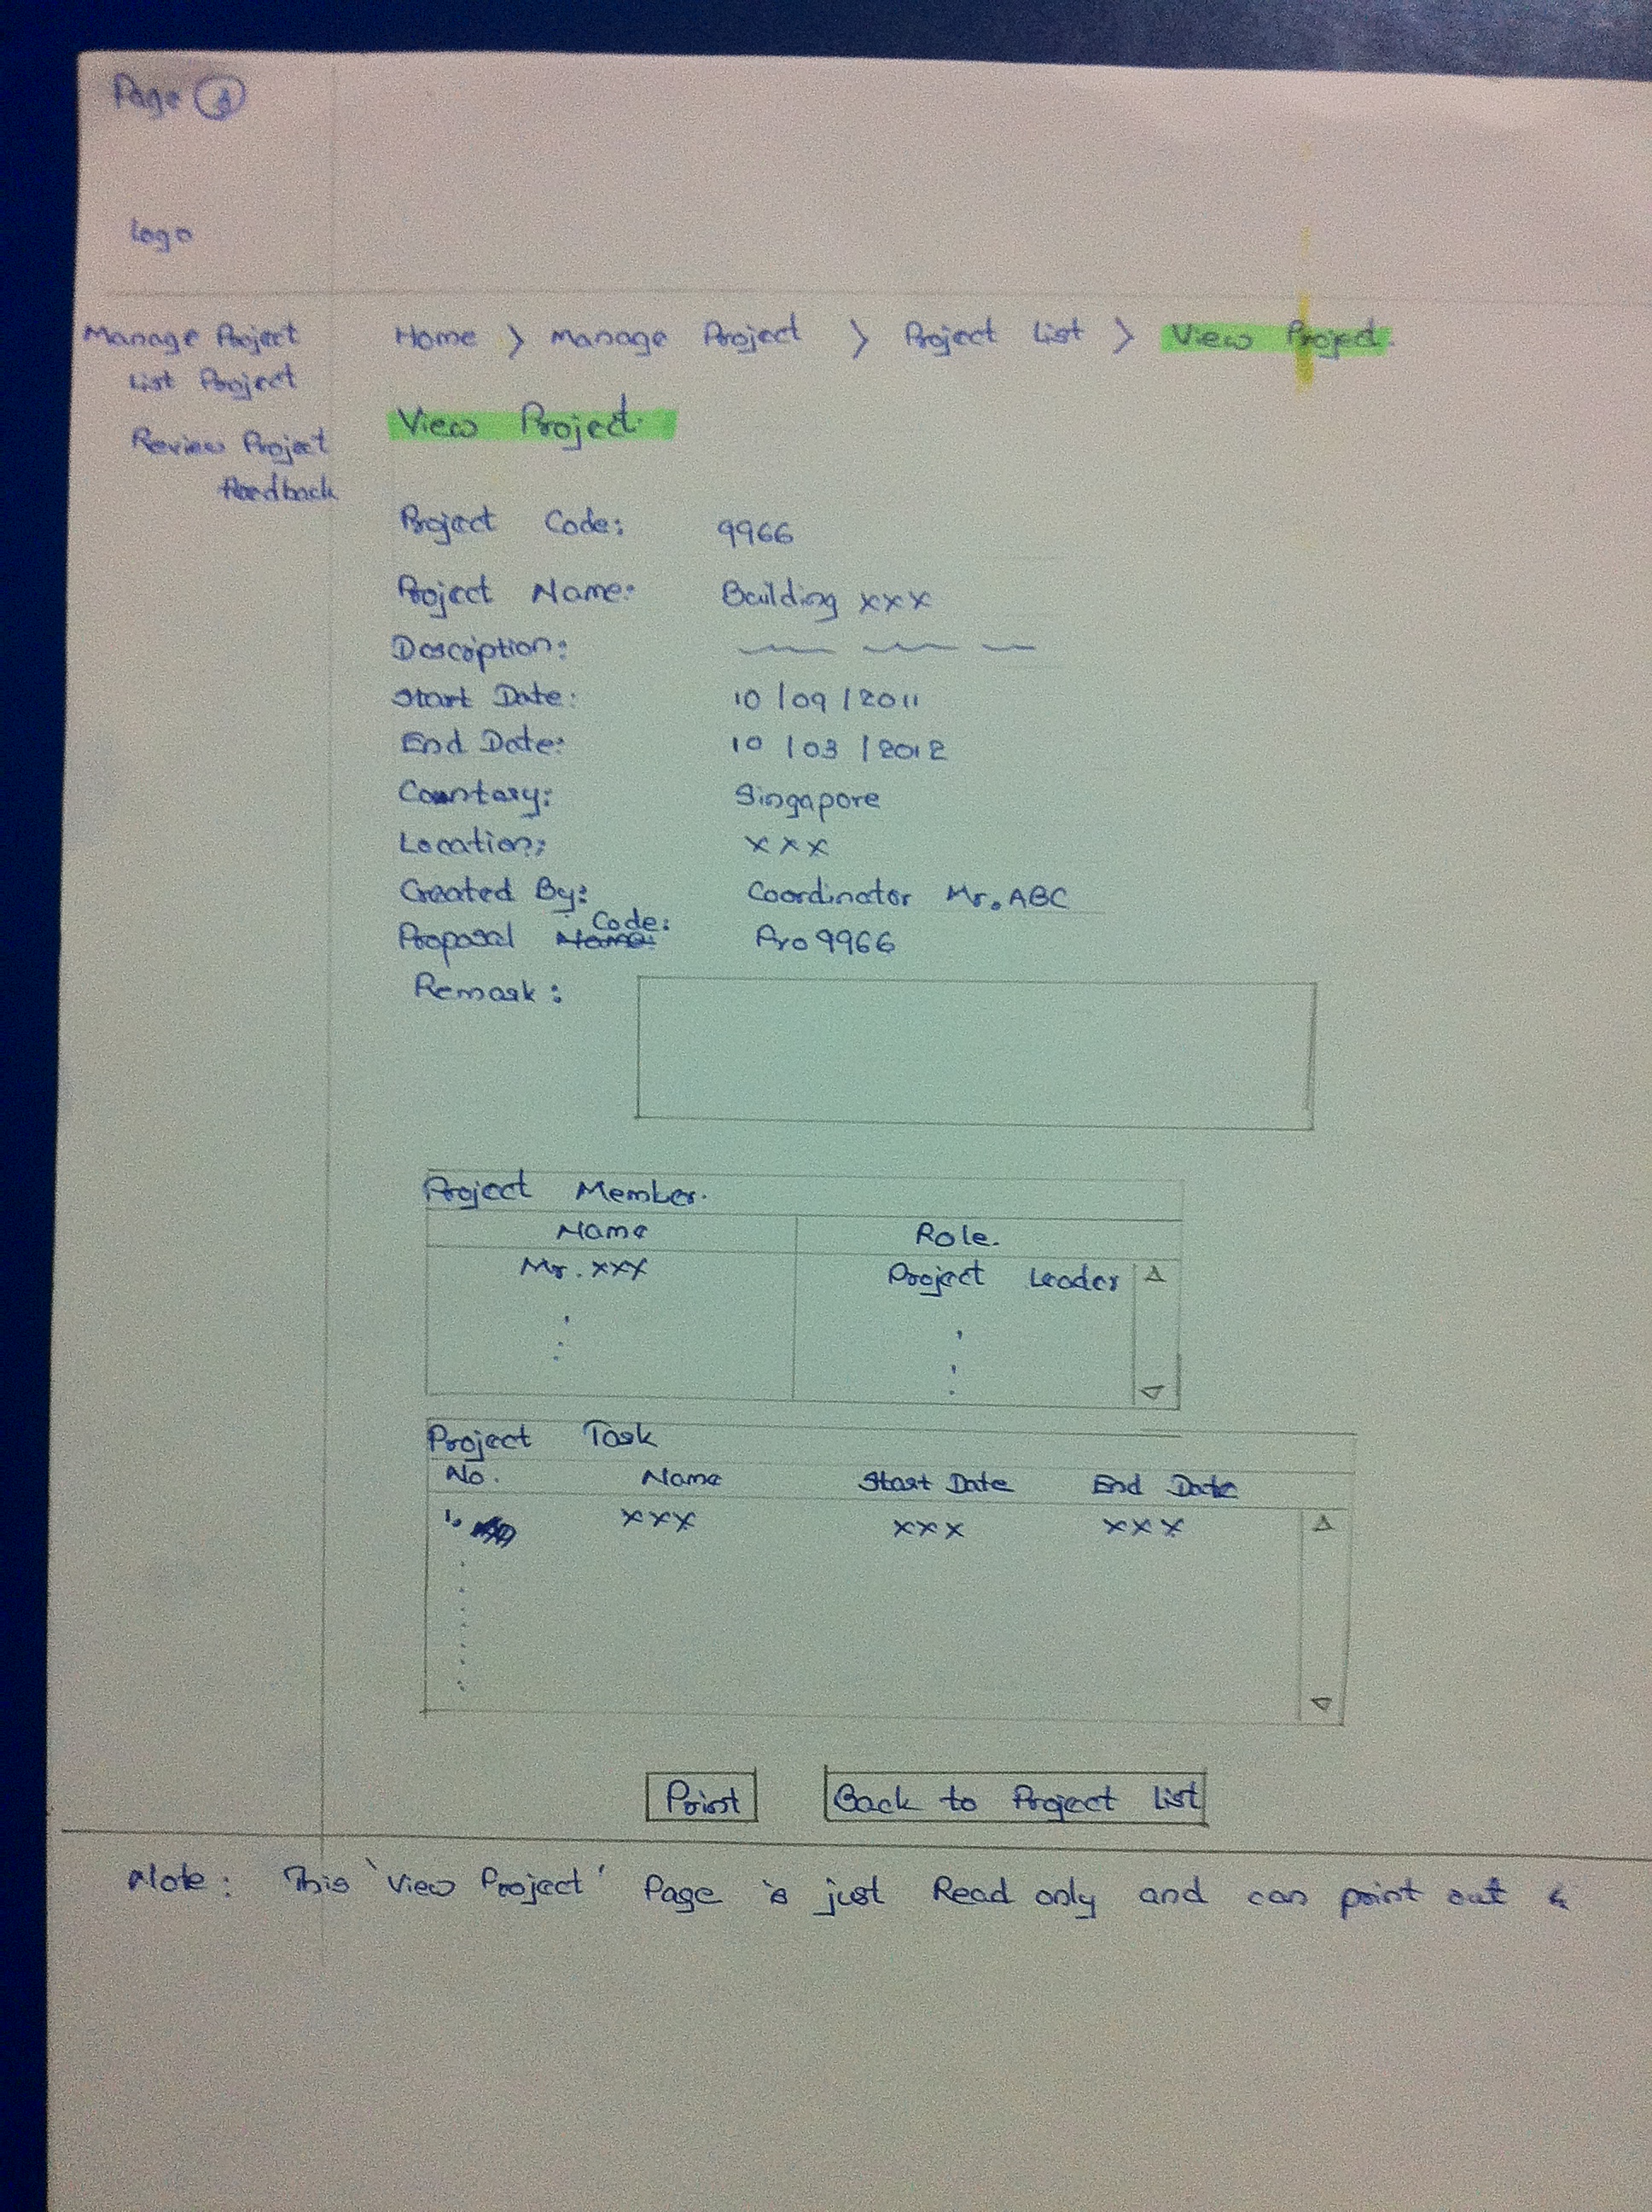 Page 3
Logo
Manage Project
List Project
Review Project
Feedback
Home > Manage Project > Project List > View Project.
View Project.
Project Code: 9966
Project Name: Building xxx
Description:
Start Date: 10/09/2011
End Date: 10/03/2012
Country: Singapore
Location: xxx
Created By: Coordinator Mr. ABC
Proposal Name: Code: Pro9966
Remark:
Project Member.
Name Role.
Mr. xxx Project Leader
Project Task
No. Name Start Date End Date
1. xxx xxx xxx
Print Back to Project List
Note: This 'View Project' Page is just Read only and can print out